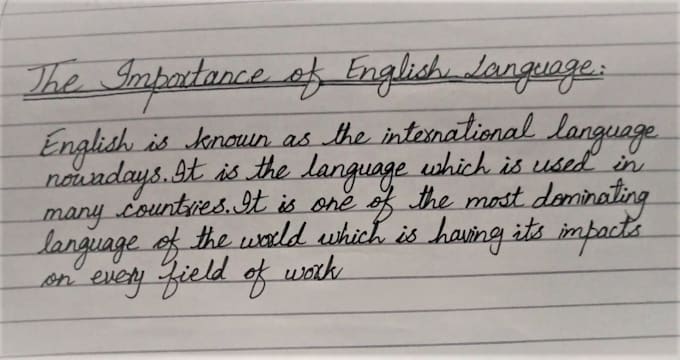 The Importance of English Language:
English is known as the international language
nowadays. It is the language which is used in
many countries. It is one of the most dominating
language of the world which is having its impacts
on every field of work